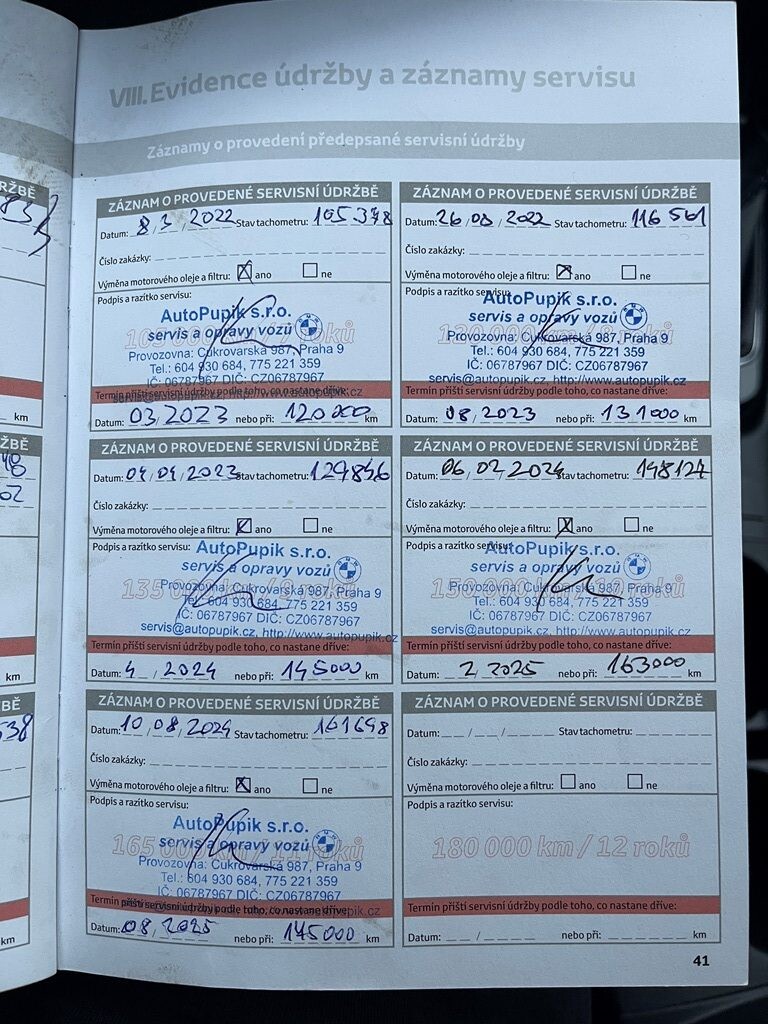 VIII. Evidence údržby a záznamy servisu
Záznamy o provedení předepsané servisní údržby
ZÁZNAM O PROVEDENÉ SERVISNÍ ÚDRŽBĚ
Datum: 8 / 3 / 2022 Stav tachometru: 105378
Číslo zakázky:
Výměna motorového oleje a filtru: X ano ne
Podpis a razítko servisu:
AutoPupik s.r.o.
servis a opravy vozů
Provozovna: Cukrovarská 987, Praha 9
Tel.: 604 930 684, 775 221 359
IČ: 06787967 DIČ: CZ06787967
Termín příští servisní údržby podle toho, co nastane dříve:
Datum: 03, 2023 nebo při: 120000 km
ZÁZNAM O PROVEDENÉ SERVISNÍ ÚDRŽBĚ
Datum: 26 / 08 / 2022 Stav tachometru: 116561
Číslo zakázky:
Výměna motorového oleje a filtru: X ano ne
Podpis a razítko servisu:
AutoPupik s.r.o.
servis a opravy vozů
Provozovna: Cukrovarská 987, Praha 9
Tel.: 604 930 684, 775 221 359
IČ: 06787967 DIČ: CZ06787967
servis@autopupik.cz, http://www.autopupik.cz
Termín příští servisní údržby podle toho, co nastane dříve:
Datum: 08 / 2023 nebo při: 131000 km
ZÁZNAM O PROVEDENÉ SERVISNÍ ÚDRŽBĚ
Datum: 04 / 04 / 2023 Stav tachometru: 129846
Číslo zakázky:
Výměna motorového oleje a filtru: X ano ne
Podpis a razítko servisu:
AutoPupik s.r.o.
servis a opravy vozů
Provozovna: Cukrovarská 987, Praha 9
Tel.: 604 930 684, 775 221 359
IČ: 06787967 DIČ: CZ06787967
servis@autopupik.cz, http://www.autopupik.cz
Termín příští servisní údržby podle toho, co nastane dříve:
Datum: 4 / 2024 nebo při: 145000 km
ZÁZNAM O PROVEDENÉ SERVISNÍ ÚDRŽBĚ
Datum: 06 / 02 / 2024 Stav tachometru: 148124
Číslo zakázky:
Výměna motorového oleje a filtru: X ano ne
Podpis a razítko servisu:
AutoPupik s.r.o.
servis a opravy vozů
Provozovna: Cukrovarská 987, Praha 9
Tel.: 604 930 684, 775 221 359
IČ: 06787967 DIČ: CZ06787967
servis@autopupik.cz, http://www.autopupik.cz
Termín příští servisní údržby podle toho, co nastane dříve:
Datum: 2 / 2025 nebo při: 163000 km
ZÁZNAM O PROVEDENÉ SERVISNÍ ÚDRŽBĚ
Datum: 10 / 08 / 2024 Stav tachometru: 161698
Číslo zakázky:
Výměna motorového oleje a filtru: X ano ne
Podpis a razítko servisu:
AutoPupik s.r.o.
servis a opravy vozů
Provozovna: Cukrovarská 987, Praha 9
Tel.: 604 930 684, 775 221 359
IČ: 06787967 DIČ: CZ06787967
Termín příští servisní údržby podle toho, co nastane dříve:
Datum: 08, 2025 nebo při: 145000 km
ZÁZNAM O PROVEDENÉ SERVISNÍ ÚDRŽBĚ
Datum: / / Stav tachometru:
Číslo zakázky:
Výměna motorového oleje a filtru: ano ne
Podpis a razítko servisu:
180 000 km / 12 roků
Termín příští servisní údržby podle toho, co nastane dříve:
Datum: / nebo při: km
41